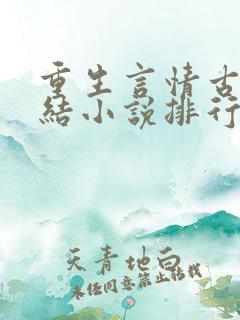 重生言情古
結小說排行
天青地白
未經同意禁止轉載